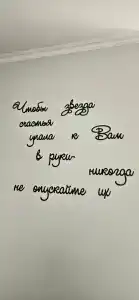 Чтобы звезда
счастья
упала к Вам
в руки-
никогда
не опускайте их